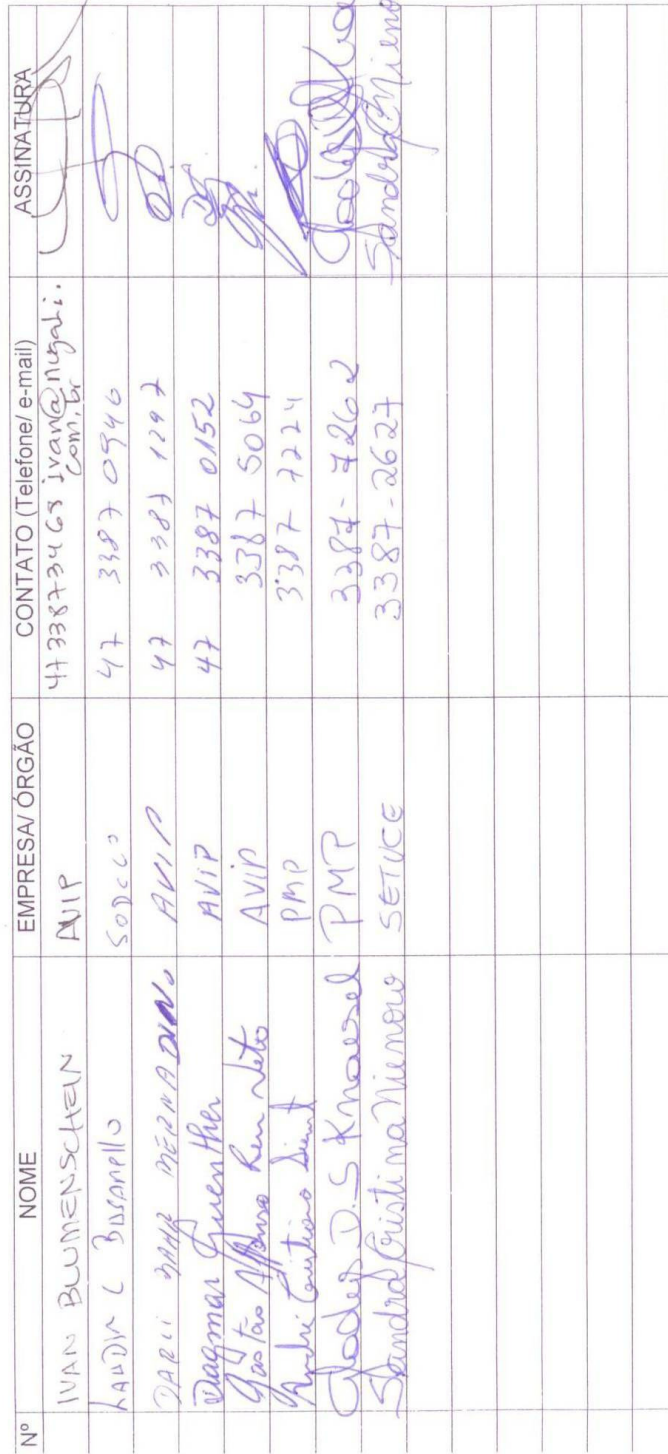 Nº NOME EMPRESA/ ÓRGÃO CONTATO (Telefone/ e-mail) ASSINATURA
IVAN BLUMENSCHEIN AVIP 47 33873468 ivan@nugali.
com.br
LAUDIR C BUSANELLO SODECO 47 3387 0946
DARCI AVIP 47 3387 1297
Dagmar Guenther AVIP 47 3387 0152
Gastão Affonso Neto AVIP 3387 5064
André Cristiano PMP 3387 7224
Glades D. S Knaesel PMP 3387-7262
Sandra Cristina Nienow SETUCE 3387-2627 Sandra C Nienow